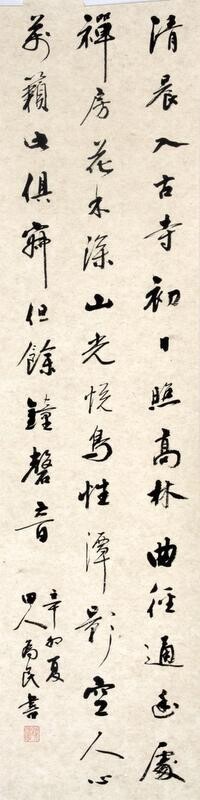 清晨入古寺初日照高林曲徑通幽處
禪房花木深山光悅鳥性潭影空人心
萬籟此俱寂但餘鐘磬音
辛卯夏
田人為民書